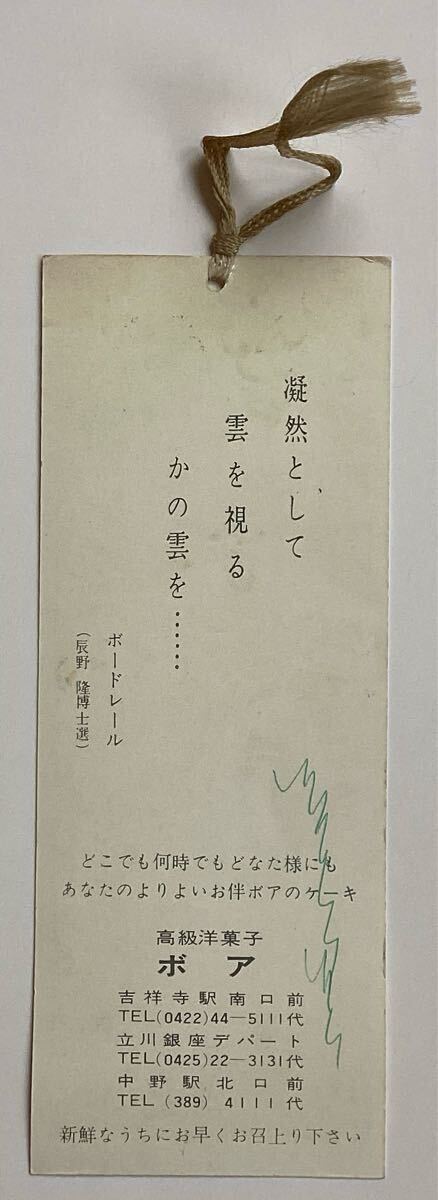 凝然として
雲を視る
かの雲を……
ボードレール
(辰野 隆博士選)
どこでも何時でもどなた様にも
あなたのよりよいお伴ボアのケーキ
高級洋菓子
ボア
吉祥寺駅南口前
TEL(0422)44—5111代
立川銀座デパート
TEL(0425)22—3131代
中野駅北口前
TEL (389) 4111 代
新鮮なうちにお早くお召上り下さい